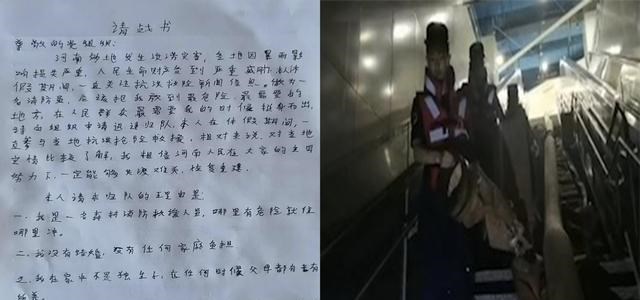 请战书
尊敬的党组织:
河南多地发生洪涝灾害,多地因暴雨影
响损失严重,人民生命财产受到严重威胁,本人休
假期间,一直关注抗洪抢险新闻信息。做为一
名消防员,应该把我放到最危险、最需要的
地方,在人民群众最需要我的时候挺身而出,
特向组织申请迅速归队。本人在休假期间,一
直参与当地抗洪抢险救援,相对来说,对当地
灾情比较了解,我相信河南人民在大家的共同
努力下,一定能够共渡难关,恢复重建。
本人请求归队的理由是
一、我是一名森林消防救援人员,哪里有危险就往
哪里冲。
二、我没有结婚,没有任何家庭负担
三、我在家中不是独生子,在任何时候父母都有